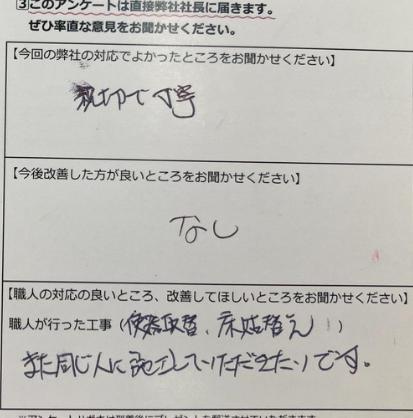 ③このアンケートは直接弊社社長に届きます。
ぜひ率直な意見をお聞かせください。
【今回の弊社の対応でよかったところをお聞かせください】
親切で丁寧
【今後改善した方が良いところをお聞かせください】
なし
【職人の対応の良いところ、改善してほしいところをお聞かせください】
職人が行った工事（便器取替、床貼替え）
また同じ人に施工していただきたいです。